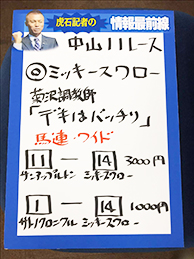 虎石記者の
情報最前線
中山11レース
◎ミッキースワロー
菊沢調教師
「デキはバッチリ」
馬連・ワイド
11 ー 14 3000円
サンアップルトン ミッキースワロー
1 ー 14 1000円
サトノクロニクル ミッキースワロー